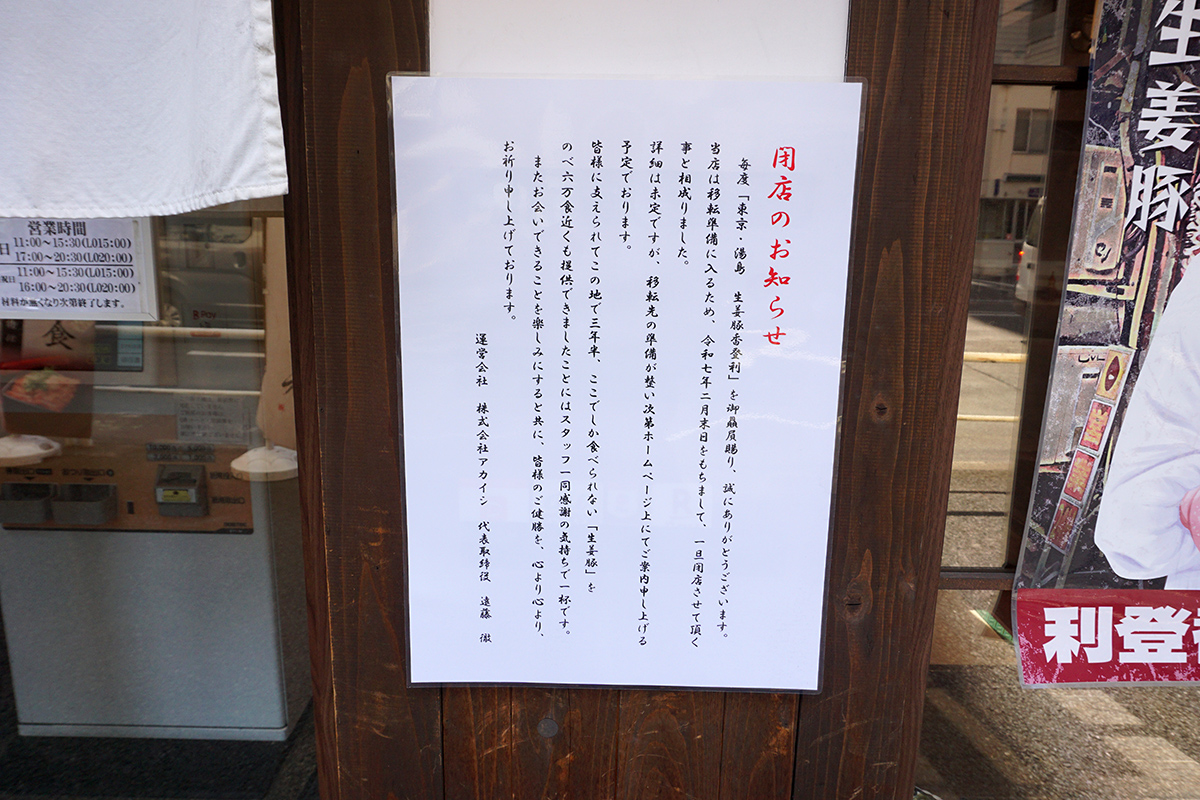 閉店のお知らせ
毎度「東京・湯島 生姜豚香登利」を御贔屓賜り、誠にありがとうございます。
当店は移転準備に入るため、令和七年二月末日をもちまして、一旦閉店させて頂く
事と相成りました。
詳細は未定ですが、移転先の準備が整い次第ホームページ上にてご案内申し上げる
予定でおります。
皆様に支えられてこの地で三年半、ここでしか食べられない「生姜豚」を
のべ六万食近くも提供できましたことにはスタッフ一同感謝の気持ちで一杯です。
またお会いできることを楽しみにすると共に、皆様のご健勝を、心より心より、
お祈り申し上げております。
運営会社 株式会社アカイシ 代表取締役 遠藤 徹
営業時間
日 11:00～15:30(LO15:00)
17:00～20:30(LO20:00)
祝日 11:00～15:30(LO15:00)
16:00～20:30(LO20:00)
材料が無くなり次第終了します。
食
Pay
生姜豚
利登